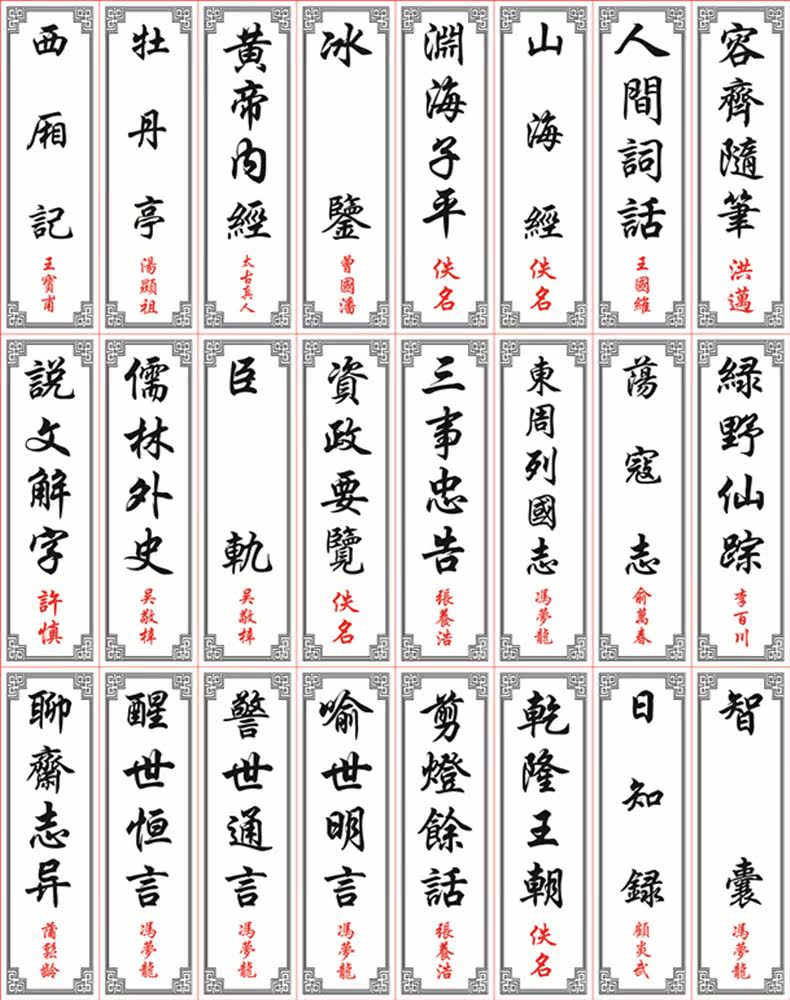 容齊隨筆
洪邁
人間詞話
王國維
山海經
佚名
淵海子平
佚名
冰鑒
曾國潘
黄帝内經
太古真人
牡丹亭
湯顯祖
西厢記
王實甫
緑野仙踪
李百川
蕩寇志
俞萬春
東周列國志
馮夢龍
三事忠告
張養浩
資政要覽
佚名
臣軌
吴敬梓
儒林外史
吴敬梓
説文解字
許慎
智囊
馮夢龍
日知録
顧炎武
乾隆王朝
佚名
剪燈餘話
張養浩
喻世明言
馮夢龍
警世通言
馮夢龍
醒世恒言
馮夢龍
聊齋志异
蒲鬆齡